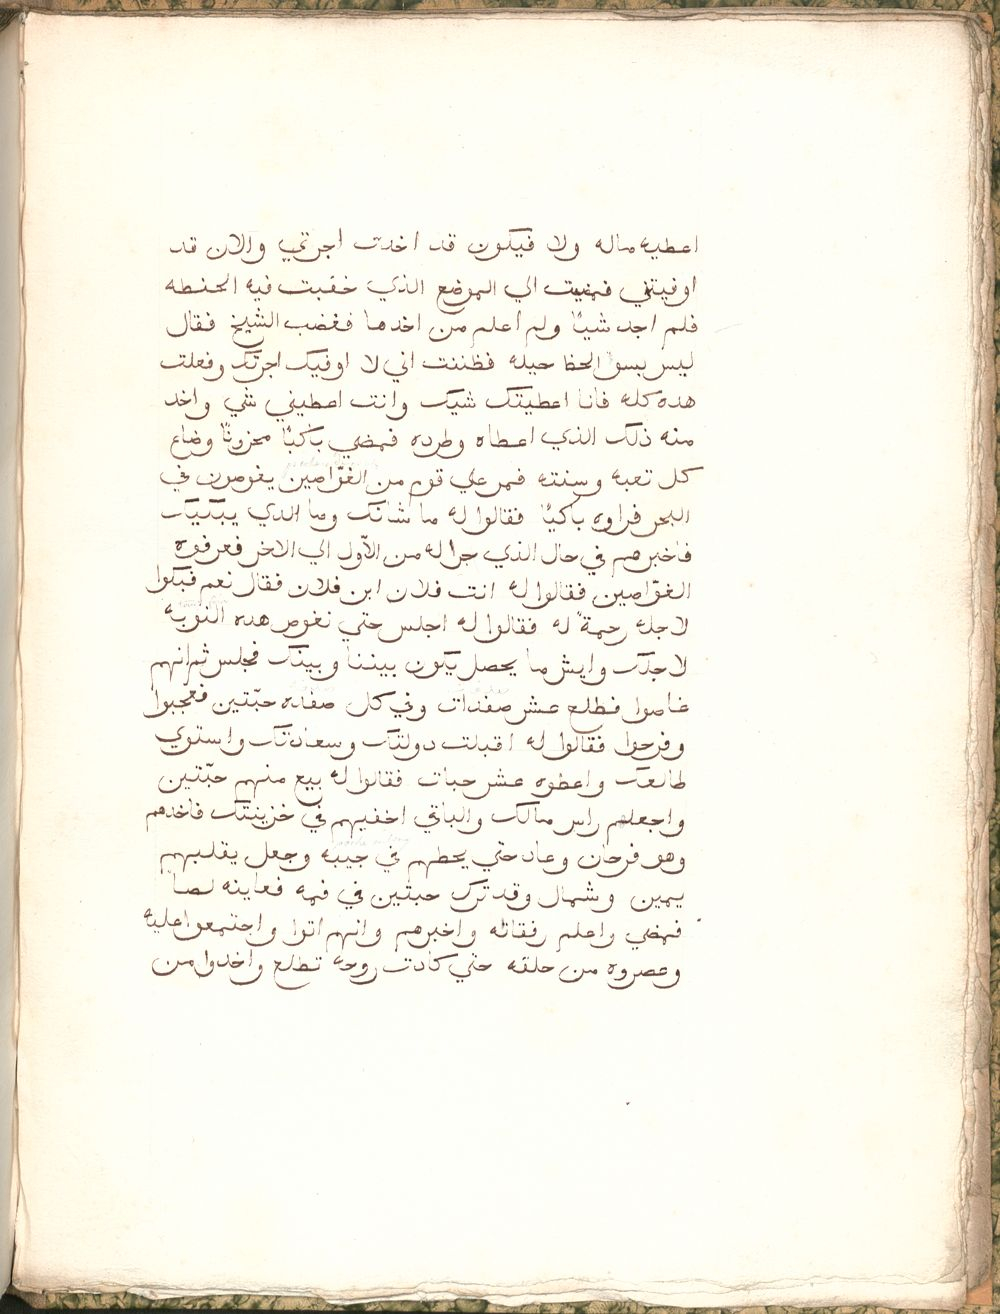 اعطيه ماله ولا فيكون قد اخدت اجرتي والان قد
اوفيتني فمضيت الي الموضع الذي خقبت فيه الحنطه
فلم اجد شياً ولم اعلم من اخدها فغضب الشيخ فقال
ليس بسو الحظ حيله فظننت اني لا اوفيك اجرتك وفعلت
هده كله فانا اعطيتك شيك وانت اعطيني شي واخد
منه ذلك الذي اعطاه وطرده فمضي باكياً محزوناً وضاع
كل تعبه وسنته فمر علي قوم من الغوّاصين يغوصون في
البحر فراوه باكياً فقالوا له ما شانك وما الدي يبكيك
فاخبرهم في حال الذي جرا له من الاول الي الاخر فعرفوه
الغوّاصين فقالوا له انت فلان ابن فلان فقال نعم فبكوا
لاجله رحمةً له فقالوا له اجلس حتي نغوص هده النوبه
لاجلك وايش ما يحصل يكون بيننا وبينك فجلس ثم انهم
غاصوا فطلع عشر صفدات وفي كل صفاده حبّتين فعجبوا
وفرحوا فقالوا له اقبلت دولتك وسعادتك واستوي
طالعك واعطوه عشر حبات فقالوا له بيع منهم حبّتين
واجعلهم راس مالك والباقي اخفيهم في خزينتك فاخدهم
وهو فرحان وعاد حتي يحطهم في جيبه وجعل يقلبهم
يمين وشمال وقد ترك حبتين في فمه فعاينه لصاً
فمضي واعلم رفقائه واخبرهم وانهم اتوا واجتمعوا عليه
وعصروه من حلقه حتي كادت روحه تطلع واخدوا من